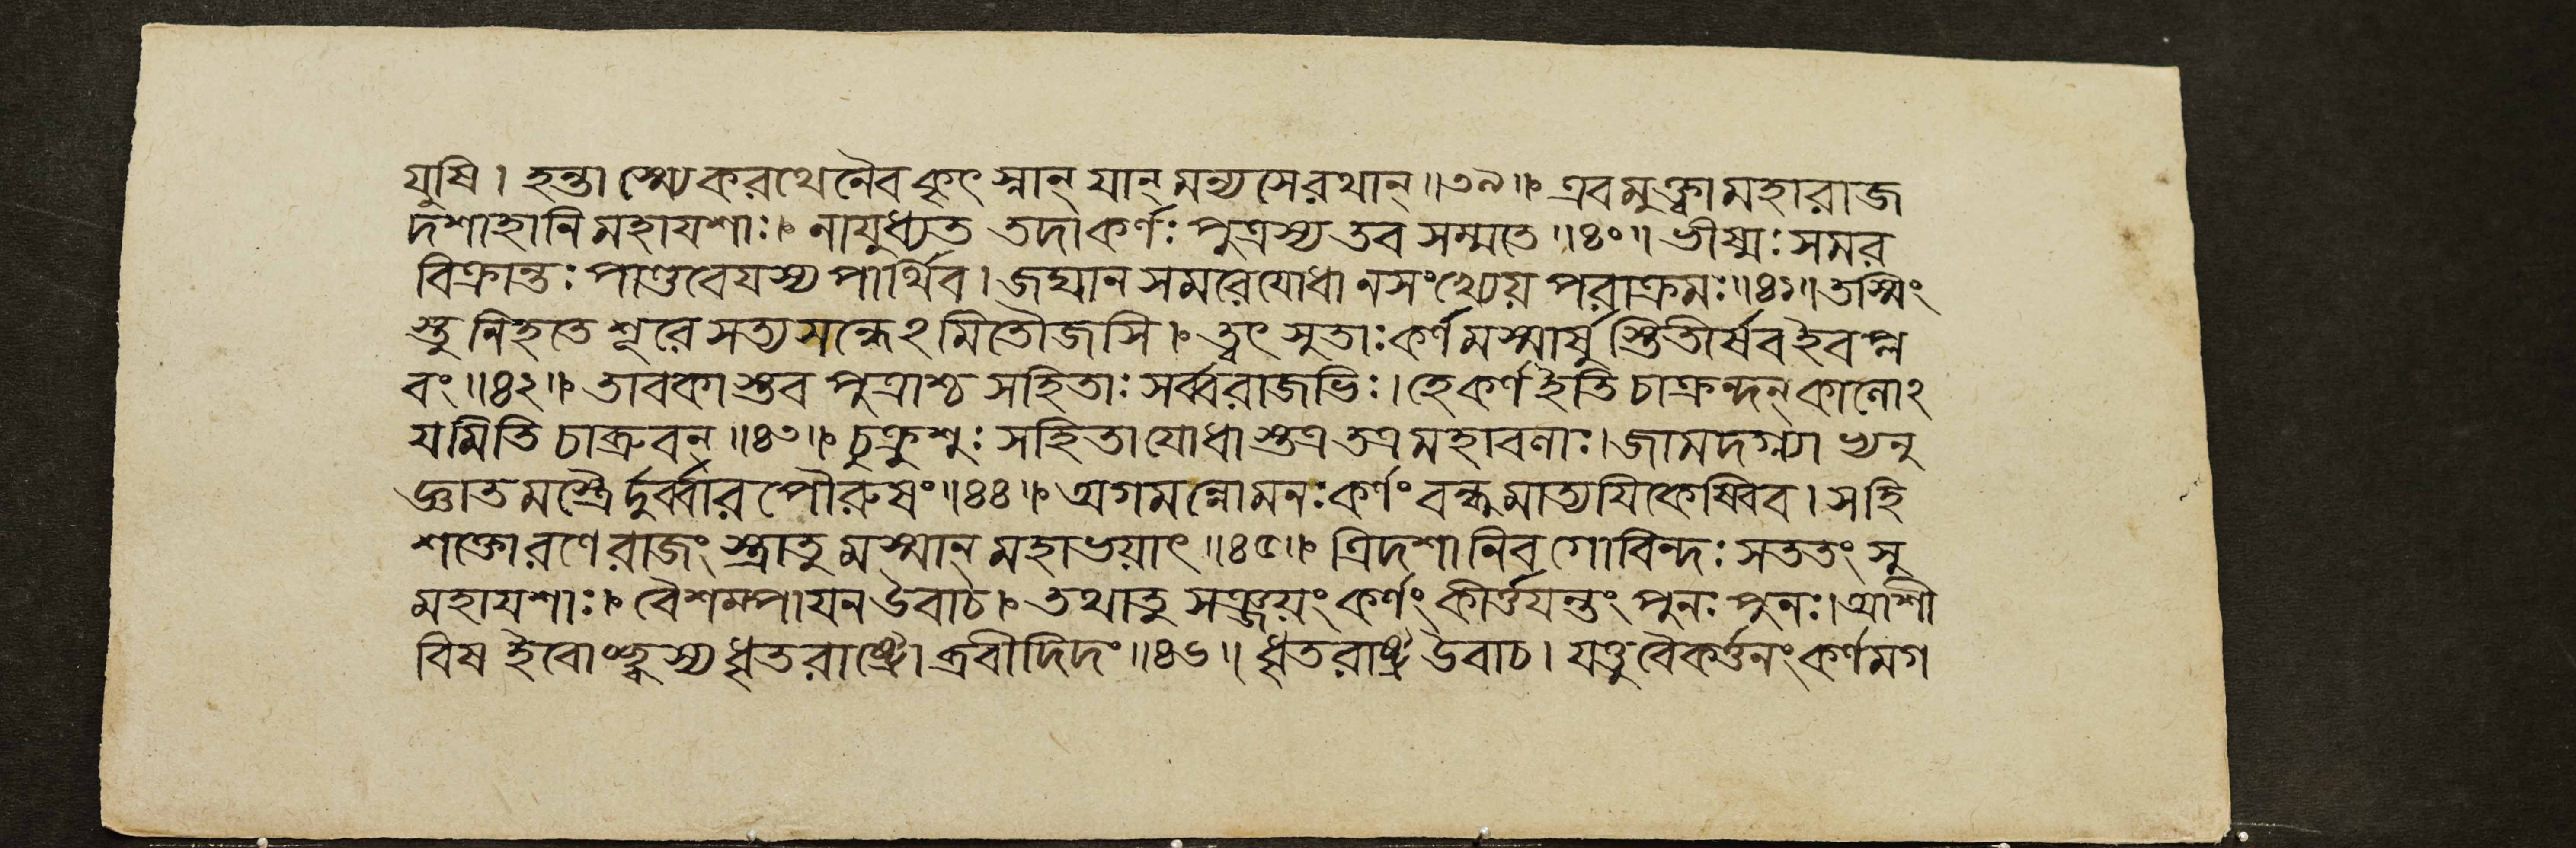 যুষি । হন্তাস্ম্যেকরথেনৈব কৃৎস্নান্ যান্ মন্যসেরথান্ ॥৩৯॥ এবমুক্ত্বামহারাজ
দশাহানিমহাযশাঃ । নাযুধ্যত তদাকর্ণঃ পুত্রস্য তব সম্মতে ॥৪০॥ ভীষ্মঃ সমর
বিক্রান্তঃ পাণ্ডবেযস্য পার্থিব । জঘান সমরেযোধানসংখ্যেয় পরাক্রমঃ ॥৪১॥ তস্মিং
স্তু নিহতে শূরে সত্যসন্ধেঽমিতৌজসি । ত্বৎ সুতাঃ কর্ণমস্মার্ষু স্তিতীর্ষব ইব প্ল
বং ॥৪২॥ তাবকাস্তব পুত্রাশ্চ সহিতাঃ সর্ব্বরাজভিঃ । হেকর্ণ ইতি চাক্রন্দন্ কালোঽ
যমিতি চাব্রুবন্ ॥৪৩॥ চুক্রুশুঃ সহিতাযোধাস্তত্র তত্র মহাবলাঃ । জামদগ্ন্যাভ্যনু
জ্ঞাতমস্ত্রৈর্দুর্ব্বারপৌরুষং ॥৪৪॥ অগমন্নোমনঃ কর্ণং বন্ধুমাত্যযিকেষ্বিব । সহি
শক্তোরণেরাজংস্ত্রাতুমস্মান্ মহাভয়াৎ ॥৪৫॥ ত্রিদশানিব গোবিন্দঃ সততং সু
মহাযশাঃ । বৈশম্পাযন উবাচ । তথাতু সঞ্জয়ং কর্ণং কীর্ত্তযন্তং পুনঃ পুনঃ । আশী
বিষ ইবোচ্ছ্বস্য ধৃতরাষ্ট্রোব্রবীদিদং ॥৪৬॥ ধৃতরাষ্ট্র উবাচ । যত্তুবৈকর্ত্তনং কর্ণমগ